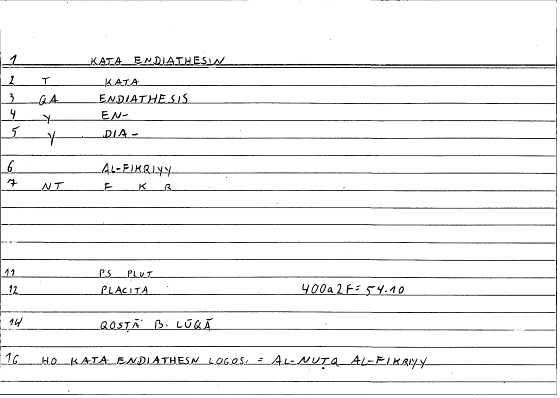 1 KATA ENDIATHESIN
2 T KATA
3 GA ENDIATHESIS
4 y EN-
5 y DIA-
6 AL-FIKRIYY
7 NT F K R
11 PS PLUT
12 PLACITA 400a2F= 54.10
14 QOSṬĀ B. LŪQĀ
16 HO KATA ENDIATHESN LOGOS. = AL-NUṬQ AL-FIKRIYY